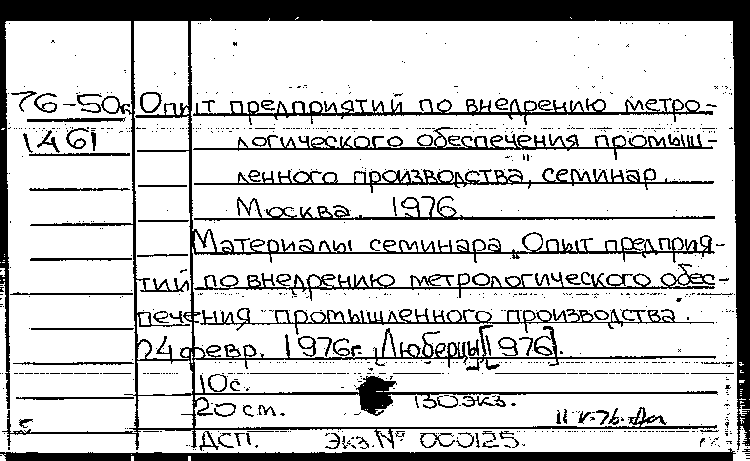 76-50к Опыт предприятий по внедрению метро-
1461 логического обеспечения промыш-
ленного производства", семинар.
Москва. 1976.
Материалы семинара „Опыт предприя-
тий по внедрению метрологического обес-
печения промышленного производства.
24 февр. 1976г. Люберцы, [1976].
10 с.
20 см. 130 экз.
11 V-76
ДСП. Экз. № 000125.